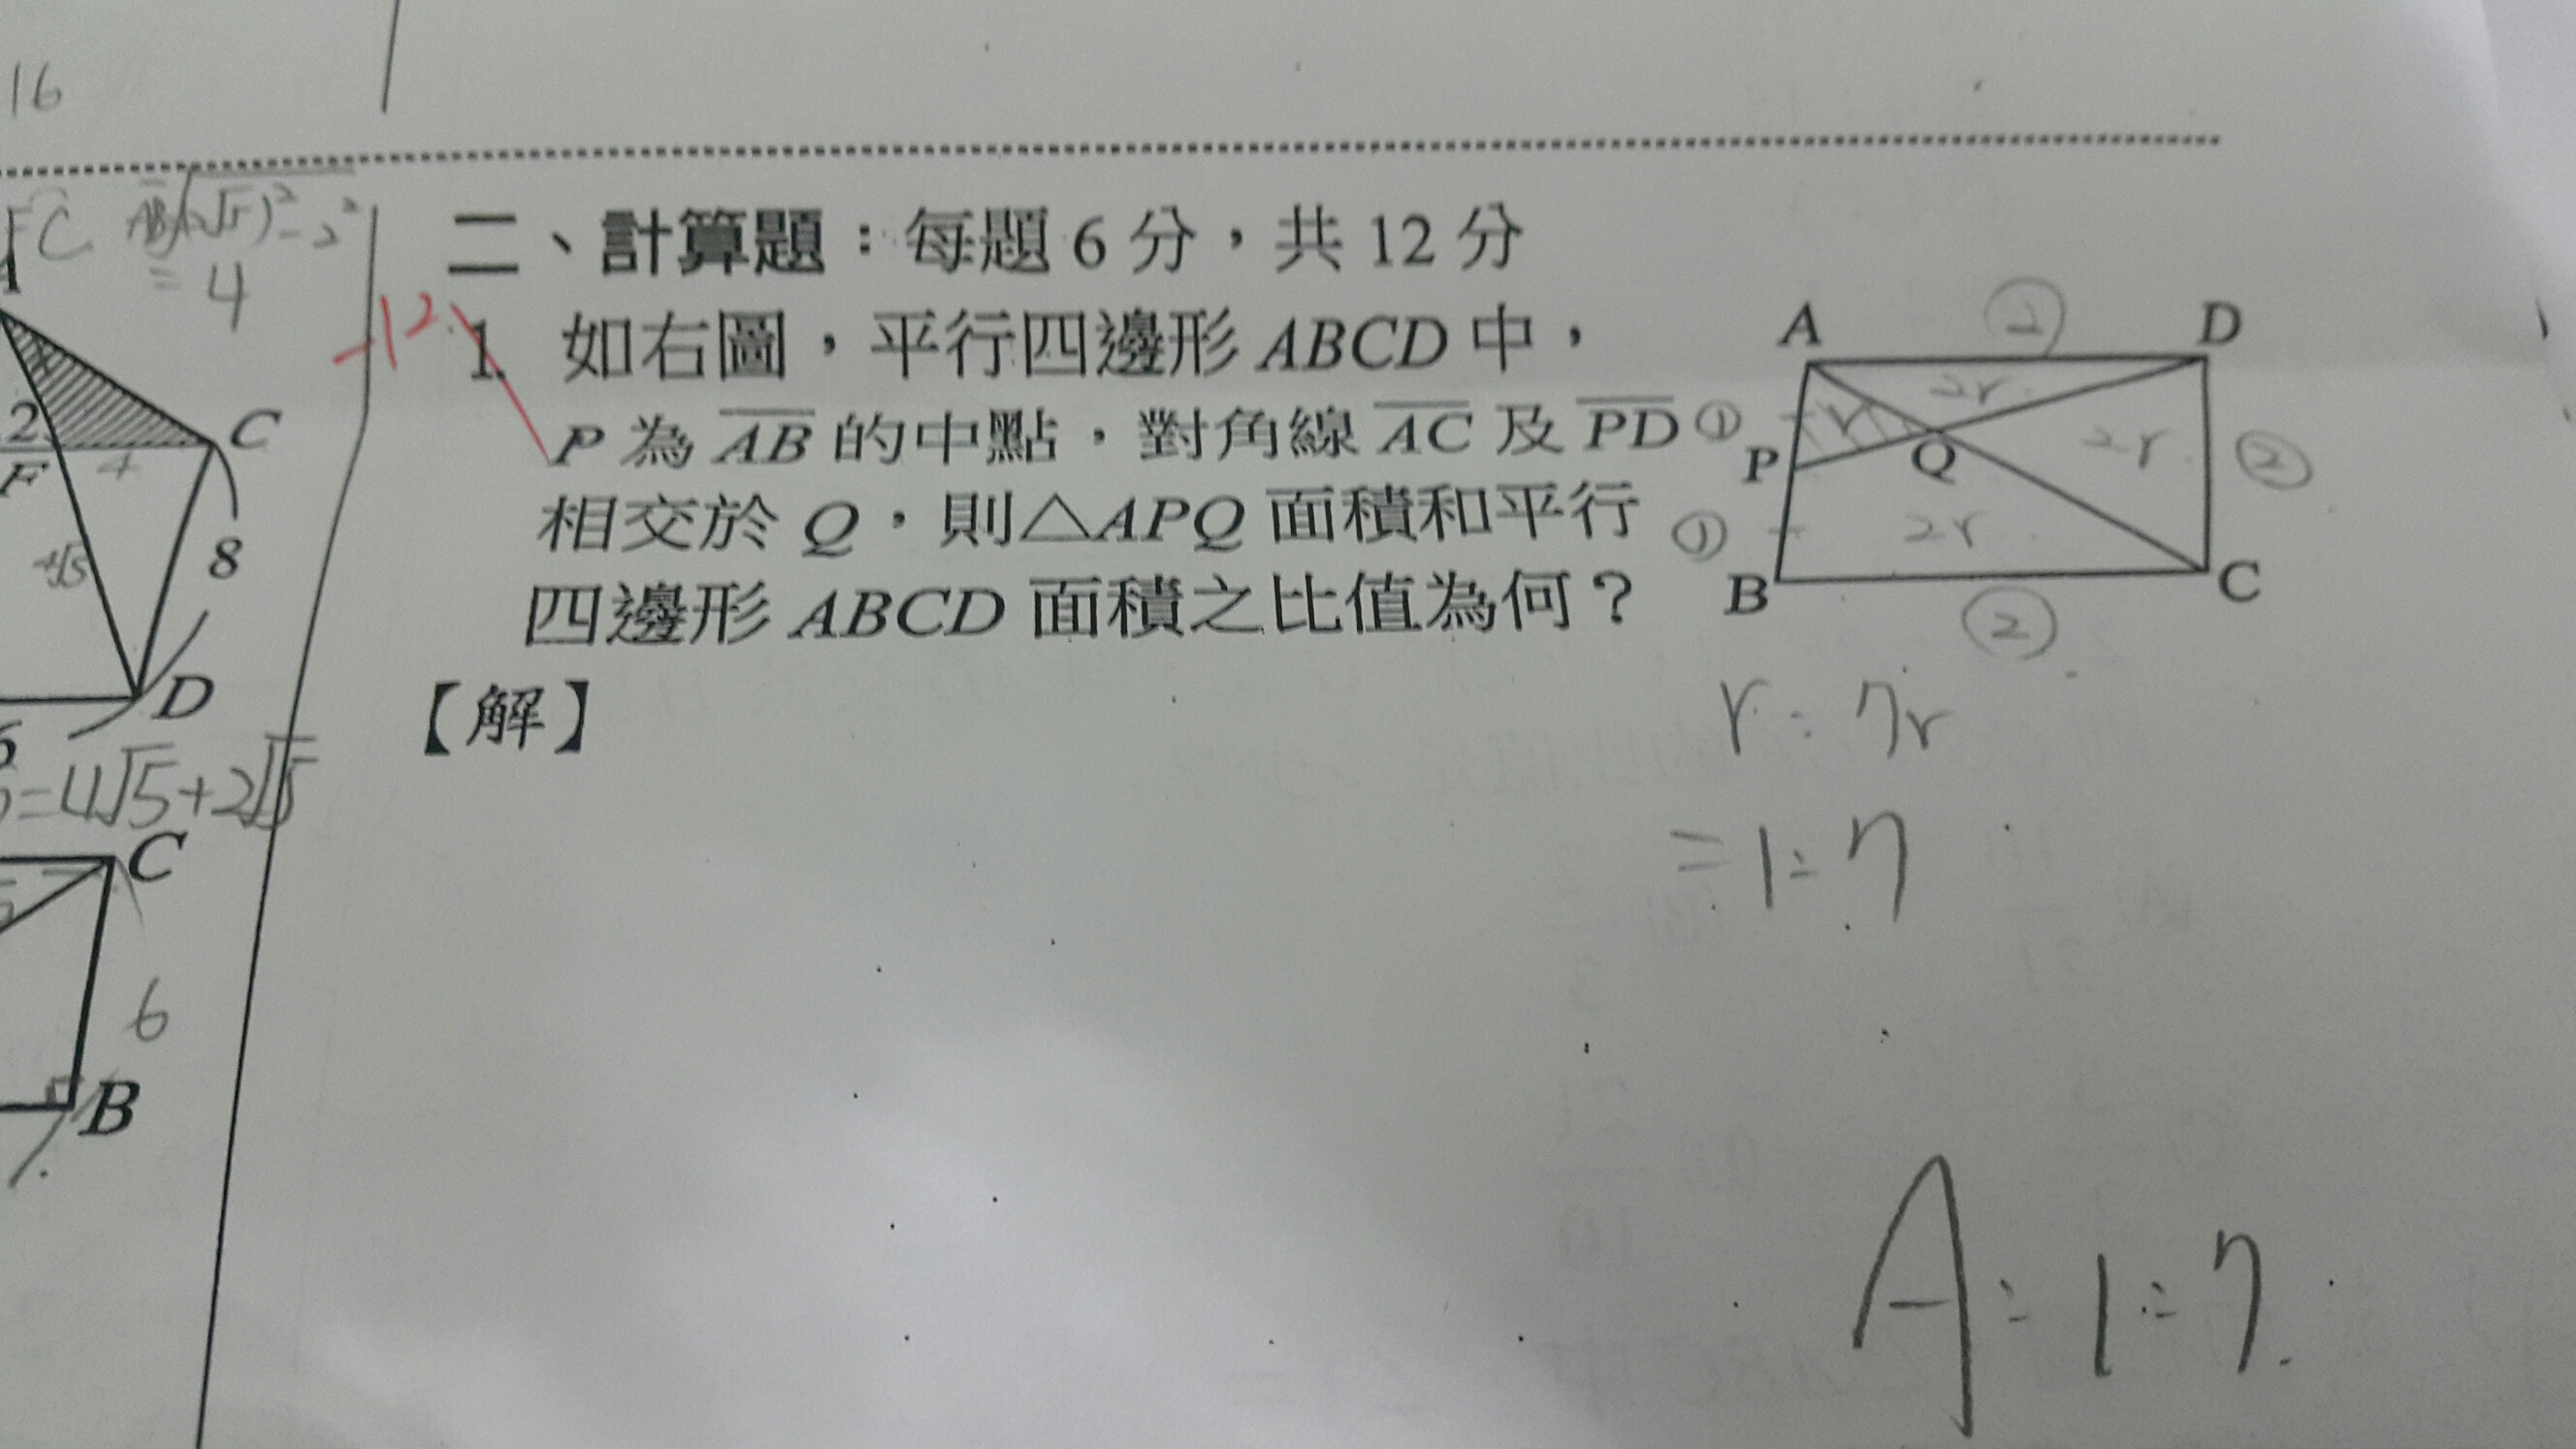 16
C AB √(2√5)²-2²
= 4
2
F
4
C
4√5
8
D
=4√5+2√5
C
6
B
-12
二、計算題：每題 6 分，共 12 分
1. 如右圖，平行四邊形 ABCD 中，
P 為 AB 的中點，對角線 AC 及 PD
相交於 Q，則△APQ 面積和平行
四邊形 ABCD 面積之比值為何？
【解】
A ② D
2r
① r 2r ②
P Q
① 2r
B ② C
r : 7r
= 1 : 7
A : 1 : 7.